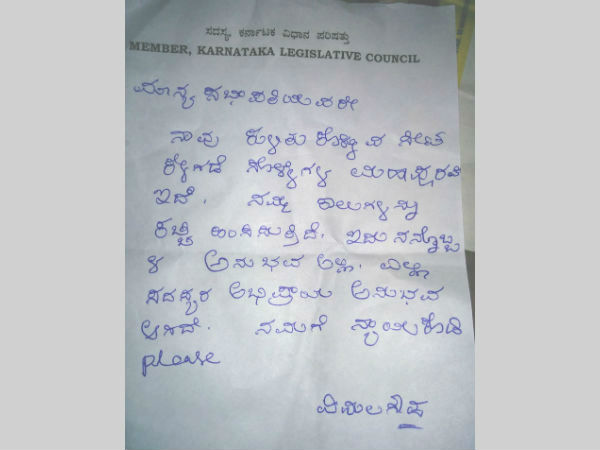 ಸದಸ್ಯ, ಕರ್ನಾಟಕ ವಿಧಾನ ಪರಿಷತ್ತು
MEMBER, KARNATAKA LEGISLATIVE COUNCIL
ಮಾನ್ಯ ಸಭಾಪತಿಯವರೇ
ನಾವು ಕುಳಿತು ಕೊಳ್ಳುವ ಸೀಟಿನ
ಕೆಳಗಡೆ ಸೊಳ್ಳೆಗಳ
ಇದೆ. ನಮ್ಮ ಕಾಲುಗಳನ್ನು
ಕಚ್ಚಿ ಹಿಂಸಿಸುತ್ತಿದೆ. ಇದು ನನ್ನೊಬ್ಬ
ಳ ಅನುಭವ ಅಲ್ಲ. ಎಲ್ಲಾ
ಸದಸ್ಯರ ಅಭಿಪ್ರಾಯ ಅನುಭವ
ಆಗಿದೆ. ನಮಗೆ ನ್ಯಾಯ ಕೊಡಿ
please
ವಿಮಲಗೌಡ